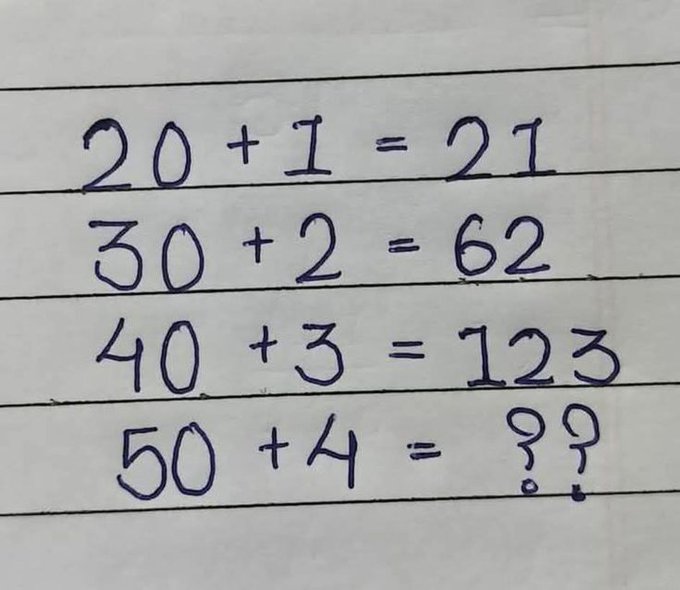 20 + 1 = 21
30 + 2 = 62
40 + 3 = 123
50 + 4 = ??